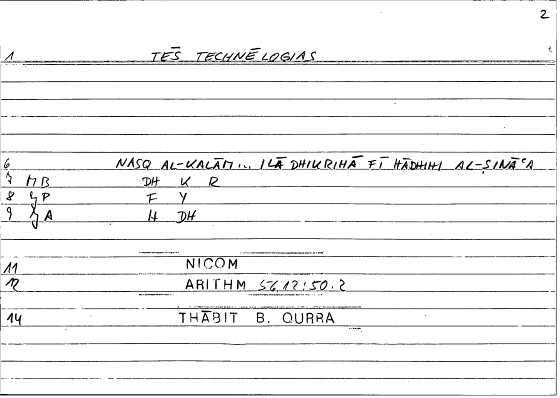 2
1 TĒS TECHNĒLOGIAS
6 NASQ AL-KALĀM... ILĀ DHIKRIHĀ FĪ HĀDHIHI AL-ṢINĀʿA
7 MB DH K R
8 P F Y
9 A H DH
11 NICOM
12 ARITHM 56,12:50.2
14 THĀBIT B. QURRA